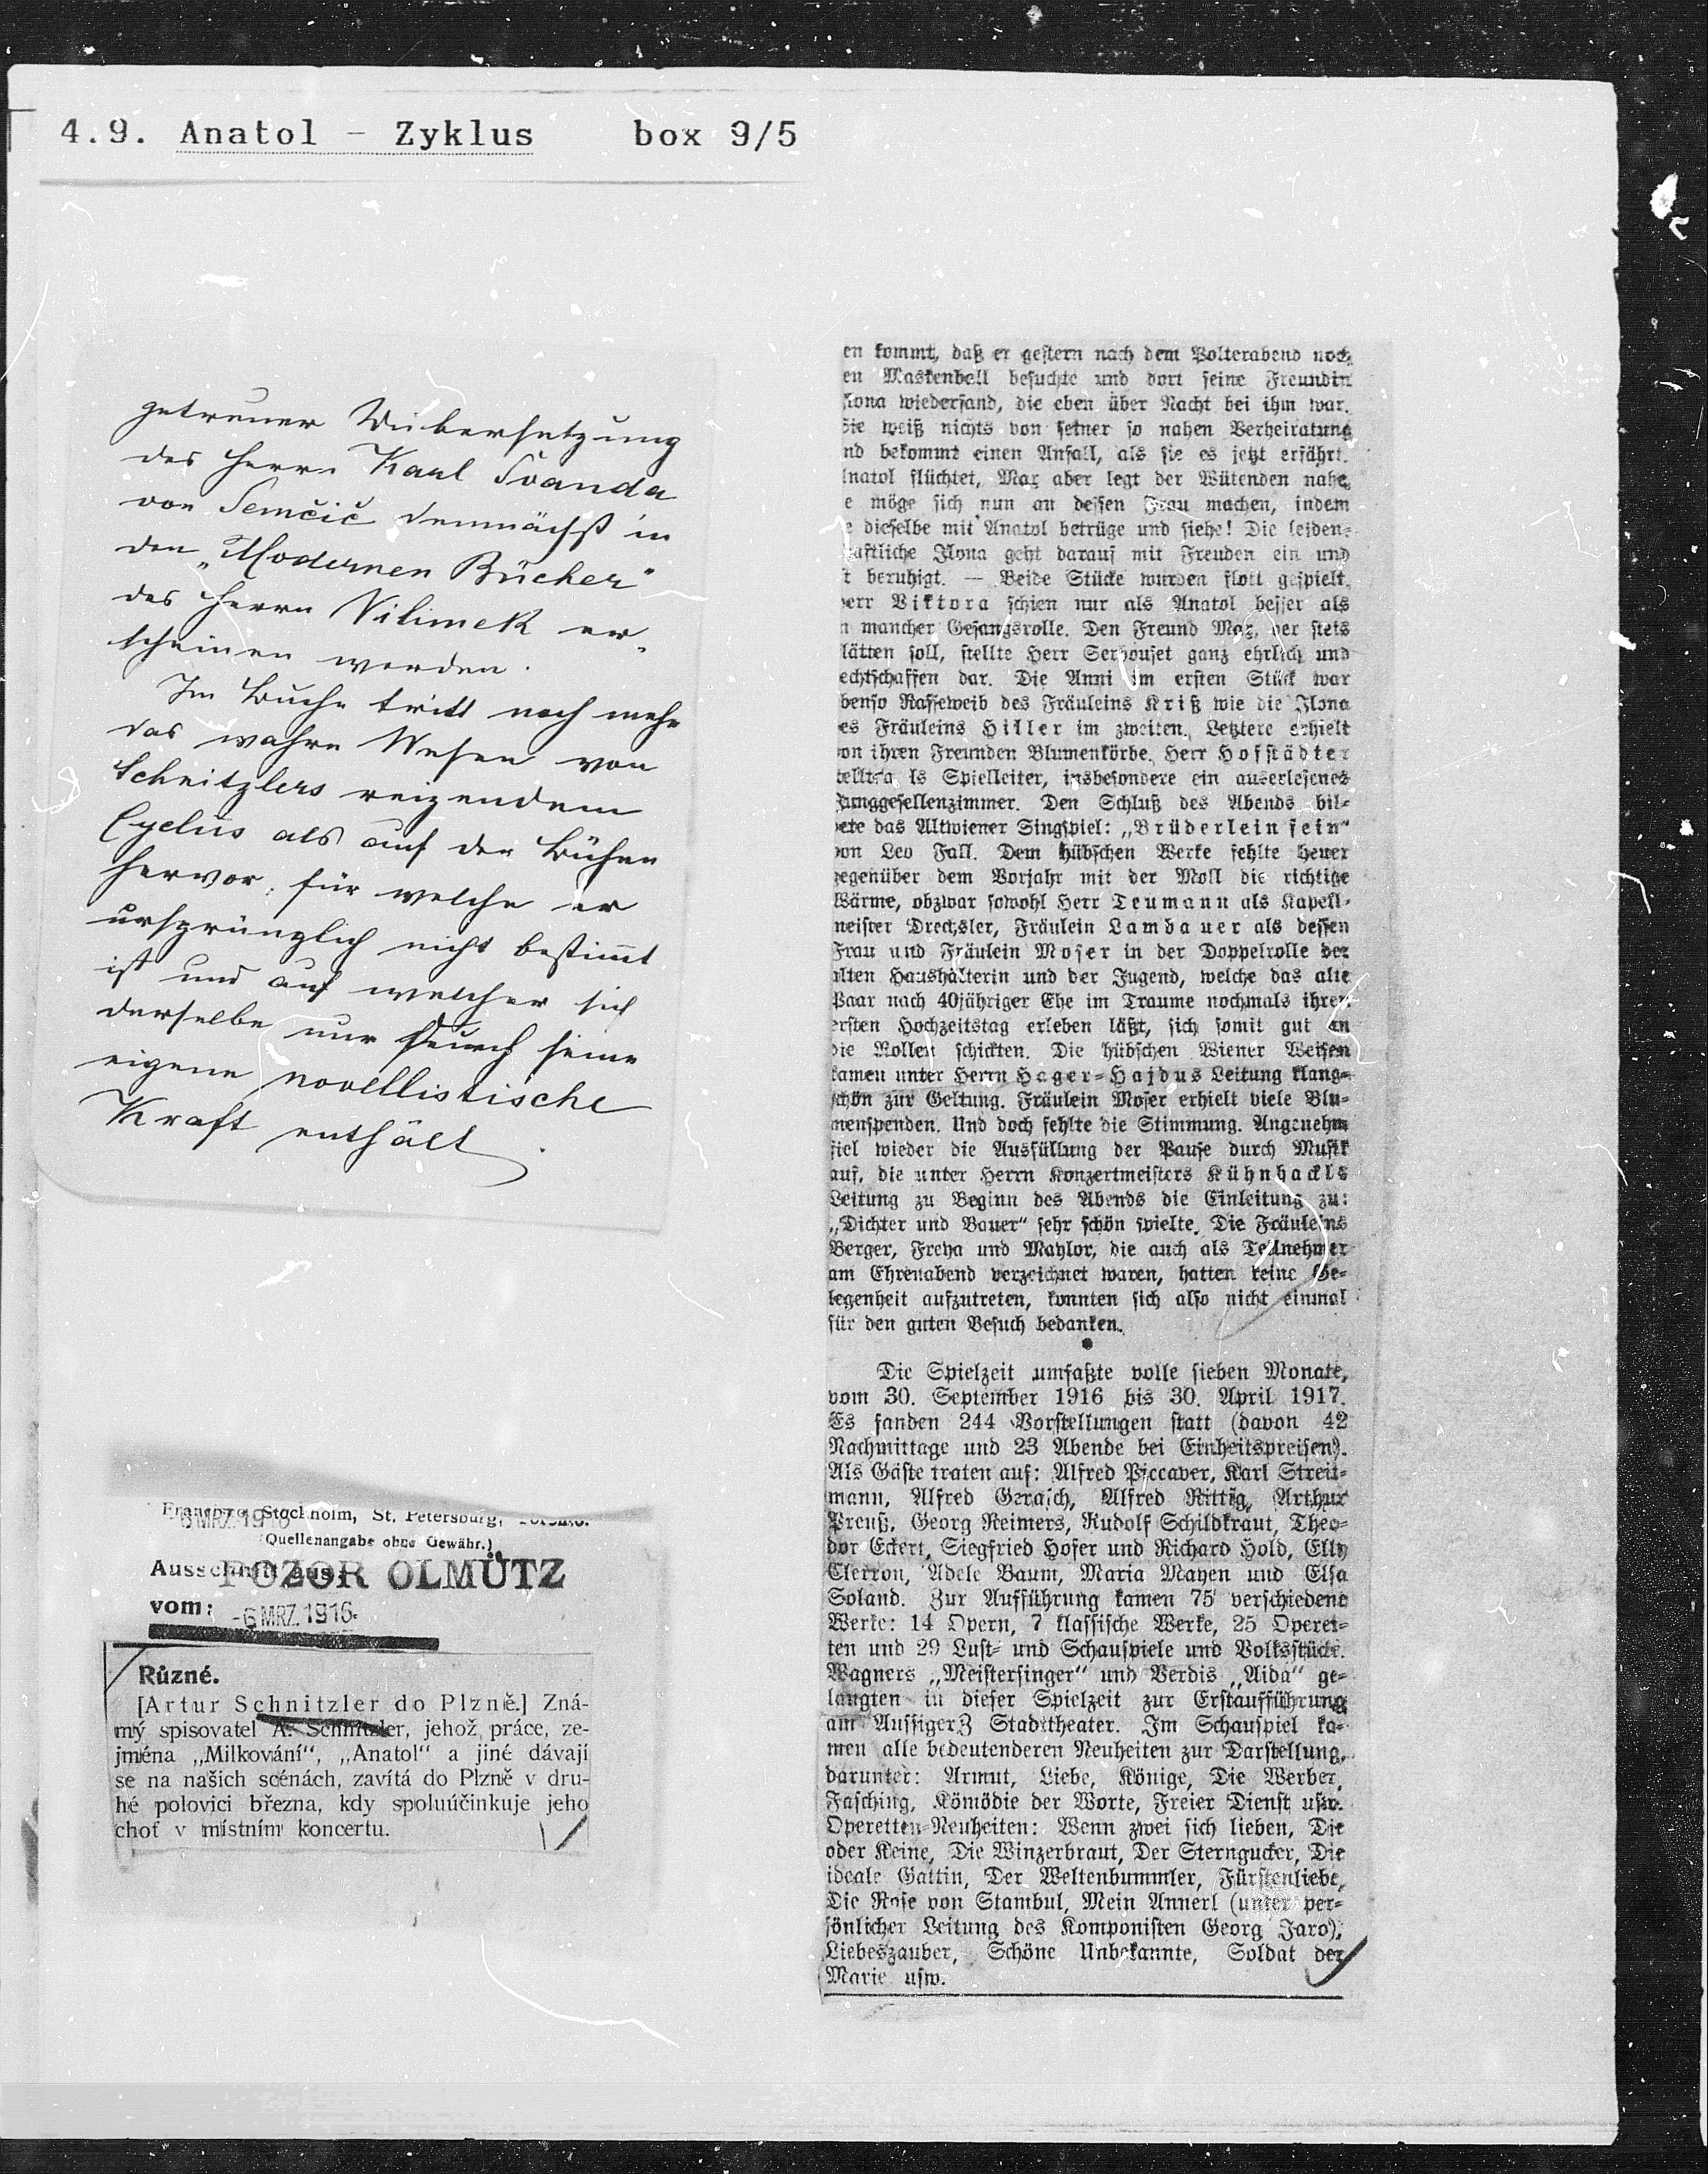 4.9. Anatol - Zyklus box 9/5
getreuer Uebersetzung
des Herrn Karl Švanda
von Semčič demnächst in
den „Modernen Bücher"
des Herrn Vilimek er-
scheinen werden.
Im Buche tritt noch mehr
das wahre Wesen von
Schnitzlers reizendem
Cyclus als auf der Bühne
hervor, für welche er
ursprünglich nicht bestimmt
ist und auf welcher sich
derselbe nur durch seine
eigene novellistische
Kraft enthält.
Stockholm, St. Petersburg,
(Quellenangabe ohne Gewähr.)
Ausschnitt aus: POZOR OLMÜTZ
vom: -6 MRZ. 1916
Různé.
[Artur Schnitzler do Plzně.] Zná-
mý spisovatel A. Schnitzler, jehož práce, ze-
jména „Milkování", „Anatol" a jiné dávají
se na našich scénách, zavítá do Plzně v dru-
hé polovici března, kdy spoluúčinkuje jeho
choť v místním koncertu.
en kommt, daß er gestern nach dem Polterabend noch
en Maskenball besuchte und dort seine Freundin
lona wiederfand, die eben über Nacht bei ihm war.
Sie weiß nichts von seiner so nahen Verheiratung
nd bekommt einen Anfall, als sie es jetzt erfährt.
lnatol flüchtet, Max aber legt der Wütenden nahe,
e möge sich nun an dessen Frau machen, indem
e dieselbe mit Anatol betrüge und siehe! Die leiden-
aftliche Ilona geht darauf mit Freuden ein und
t beruhigt. — Beide Stücke wurden flott gespielt.
err Viktora schien nur als Anatol besser als
n mancher Gesangsrolle. Den Freund Max, der stets
lätten soll, stellte Herr Serhouset ganz ehrlich und
echtschaffen dar. Die Anni im ersten Stück war
benso Rasseweib des Fräuleins Kriß wie die Ilona
es Fräuleins Hiller im zweiten. Letztere erhielt
on ihren Freunden Blumenkörbe. Herr Hofstädter
tellte a ls Spielleiter, insbesondere ein auserlesenes
Junggesellenzimmer. Den Schluß des Abends bil-
ete das Altwiener Singspiel: „Brüderlein fein"
von Leo Fall. Dem hübschen Werke fehlte heuer
gegenüber dem Vorjahr mit der Moll die richtige
Wärme, obzwar sowohl Herr Teumann als Kapell-
meister Drechsler, Fräulein Lambauer als dessen
Frau und Fräulein Moser in der Doppelrolle der
alten Haushälterin und der Jugend, welche das alte
Paar nach 40jähriger Ehe im Traume nochmals ihren
ersten Hochzeitstag erleben läßt, sich somit gut in
die Rollen schickten. Die hübschen Wiener Weisen
kamen unter Herrn Hager-Hajdus Leitung klang-
schön zur Geltung. Fräulein Moser erhielt viele Blu-
menspenden. Und doch fehlte die Stimmung. Angenehm
fiel wieder die Ausfüllung der Pause durch Musik
auf, die unter Herrn Konzertmeisters Kühnhackls
Leitung zu Beginn des Abends die Einleitung zu:
„Dichter und Bauer" sehr schön spielte. Die Fräuleins
Berger, Freya und Maylor, die auch als Teilnehmer
am Ehrenabend verzeichnet waren, hatten keine Ge-
legenheit aufzutreten, konnten sich also nicht einmal
für den guten Besuch bedanken.
Die Spielzeit umfaßte volle sieben Monate,
vom 30. September 1916 bis 30. April 1917.
Es fanden 244 Vorstellungen statt (davon 42
Nachmittage und 23 Abende bei Einheitspreisen).
Als Gäste traten auf: Alfred Piccaver, Karl Streit-
mann, Alfred Gerasch, Alfred Rittig, Arthur
Preuß, Georg Reimers, Rudolf Schildkraut, Theo-
dor Eckert, Siegfried Hofer und Richard Hold, Elly
Clerron, Adele Baum, Maria Mayen und Elsa
Soland. Zur Aufführung kamen 75 verschiedene
Werke: 14 Opern, 7 klassische Werke, 25 Operet-
ten und 29 Lust- und Schauspiele und Volksstücke.
Wagners „Meistersinger" und Verdis „Aida" ge-
langten in dieser Spielzeit zur Erstaufführung
am AussigerZ Stadttheater. Im Schauspiel ka-
men alle bedeutenderen Neuheiten zur Darstellung,
darunter: Armut, Liebe, Könige, Die Werber,
Fasching, Komödie der Worte, Freier Dienst usw.
Operetten-Neuheiten: Wenn zwei sich lieben, Die
oder Keine, Die Winzerbraut, Der Sterngucker, Die
ideale Gattin, Der Weltenbummler, Fürstenliebe,
Die Rose von Stambul, Mein Annerl (unter per-
sönlicher Leitung des Komponisten Georg Jarno),
Liebeszauber, Schöne Unbekannte, Soldat der
Marie usw.